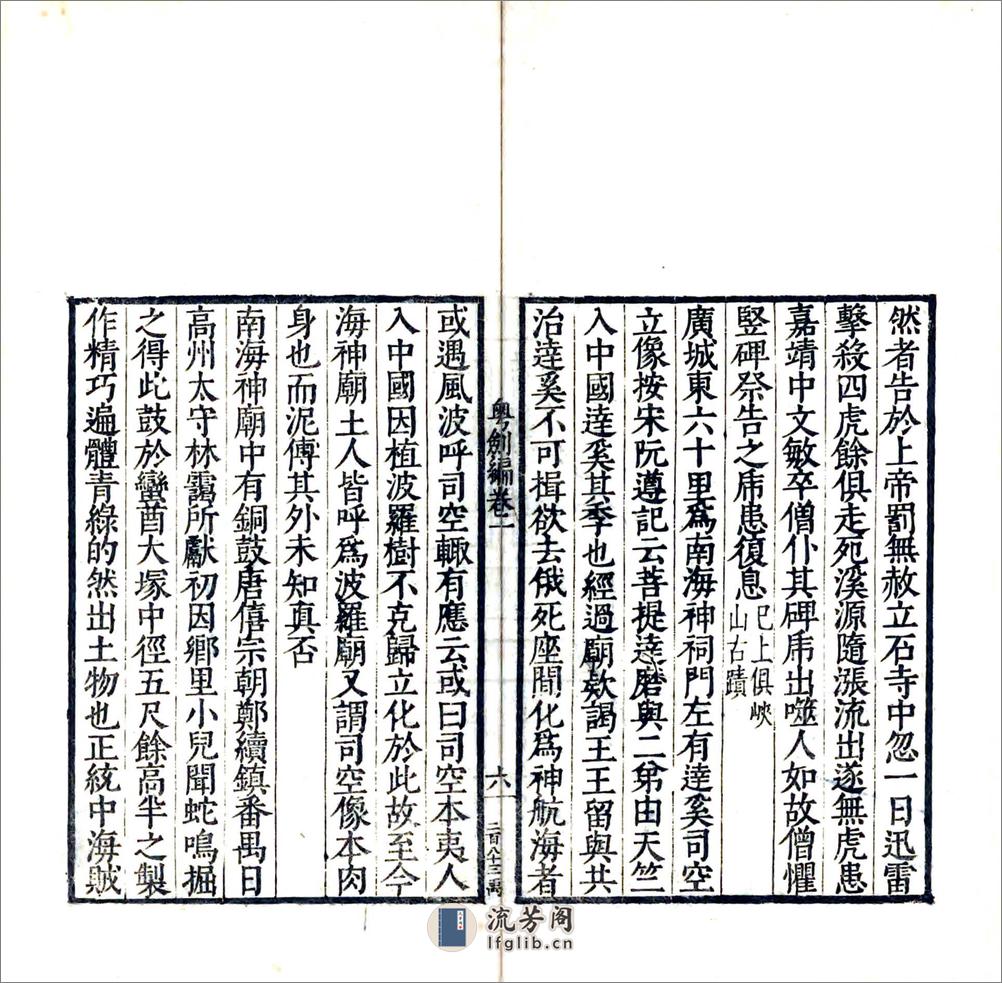 然者告於上帝罰無赦立石寺中忽一日迅雷
擊殺四虎餘俱走死溪源隨漲流出遂無虎患
嘉靖中文敏卒僧仆其碑虎出噬人如故僧懼
竪碑祭告之虎患復息已上俱峽山古蹟
廣城東六十里爲南海神祠門左有達奚司空
立像按宋阮遵記云菩提達磨與二弟由天竺
入中國達奚其季也經過廟欵謁王王留與共
治達奚不可揖欲去俄死座間化爲神航海者
粵劍編卷一
六
三百八十三萬
或遇風波呼司空輙有應云或曰司空本夷人
入中國因植波羅樹不克歸立化於此故至今
海神廟土人皆呼爲波羅廟又謂司空像本肉
身也而泥傅其外未知真否
南海神廟中有銅鼓唐僖宗朝鄭續鎮番禺日
高州太守林靄所獻初因鄉里小兒聞蛇鳴掘
之得此鼓於蠻酋大塚中徑五尺餘高半之製
作精巧遍體青綠的然出土物也正統中海賊
流芳阁
lfglib.cn